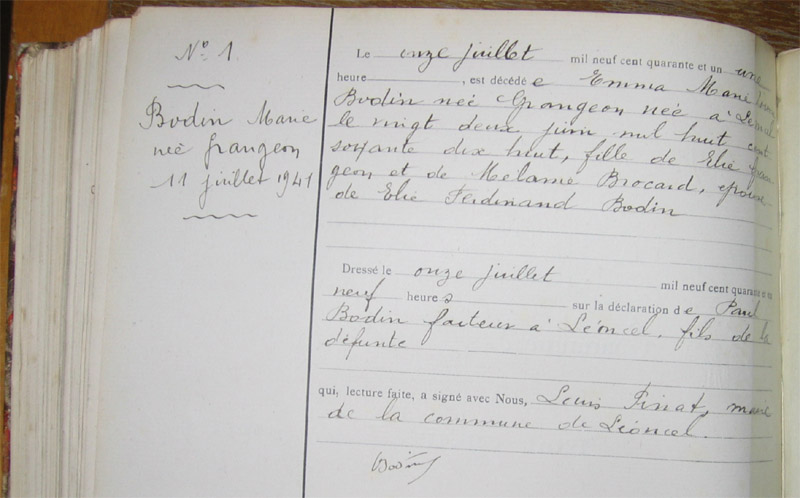 N° 1.
Bodin Marie
née Grangeon
11 juillet 1941
Le onze juillet mil neuf cent quarante et un une
heure , est décédée Emma Marie
Bodin née Grangeon née, à Léoncel
le vingt deux juin mil huit cent
soixante dix huit, fille de Elie Gran
geon et de Mélanie Brocard, épouse
de Elie Ferdinand Bodin
Dressé le onze juillet mil neuf cent quarante et un
neuf heures sur la déclaration de Paul
Bodin facteur à Léoncel, fils de la
défunte
qui, lecture faite, a signé avec Nous, Louis Finat, maire
de la commune de Léoncel.
Bodin